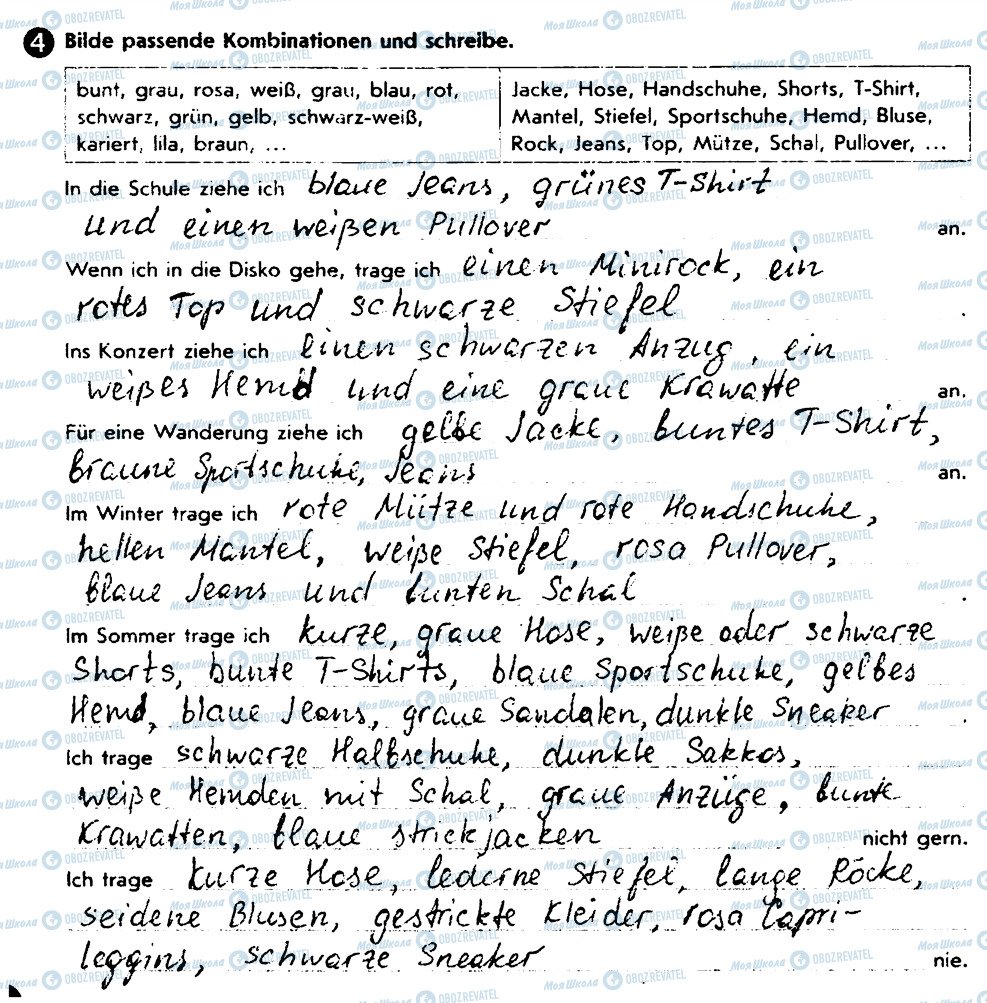 4 Bilde passende Kombinationen und schreibe.
bunt, grau, rosa, weiß, grau, blau, rot,
schwarz, grün, gelb, schwarz-weiß,
kariert, lila, braun, ...
Jacke, Hose, Handschuhe, Shorts, T-Shirt,
Mantel, Stiefel, Sportschuhe, Hemd, Bluse,
Rock, Jeans, Top, Mütze, Schal, Pullover, ...
In die Schule ziehe ich blaue Jeans, grünes T-Shirt
und einen weißen Pullover an.
Wenn ich in die Disko gehe, trage ich einen Minirock, ein
rotes Top und schwarze Stiefel .
Ins Konzert ziehe ich einen schwarzen Anzug, ein
weißes Hemd und eine graue Krawatte an.
Für eine Wanderung ziehe ich gelbe Jacke, buntes T-Shirt,
braune Sportschuhe, Jeans an.
Im Winter trage ich rote Mütze und rote Handschuhe,
hellen Mantel, weiße Stiefel, rosa Pullover,
blaue Jeans und bunten Schal .
Im Sommer trage ich kurze, graue Hose, weiße oder schwarze
Shorts, bunte T-Shirts, blaue Sportschuhe, gelbes
Hemd, blaue Jeans, graue Sandalen, dunkle Sneaker .
Ich trage schwarze Halbschuhe, dunkle Sakkos,
weiße Hemden mit Schal, graue Anzüge, bunte
Krawatten, blaue strickjacken nicht gern.
Ich trage kurze Hose, lederne Stiefel, lange Röcke,
seidene Blusen, gestrickte Kleider, rosa Capri-
leggins, schwarze Sneaker nie.
Моя Школа OBOZREVATEL